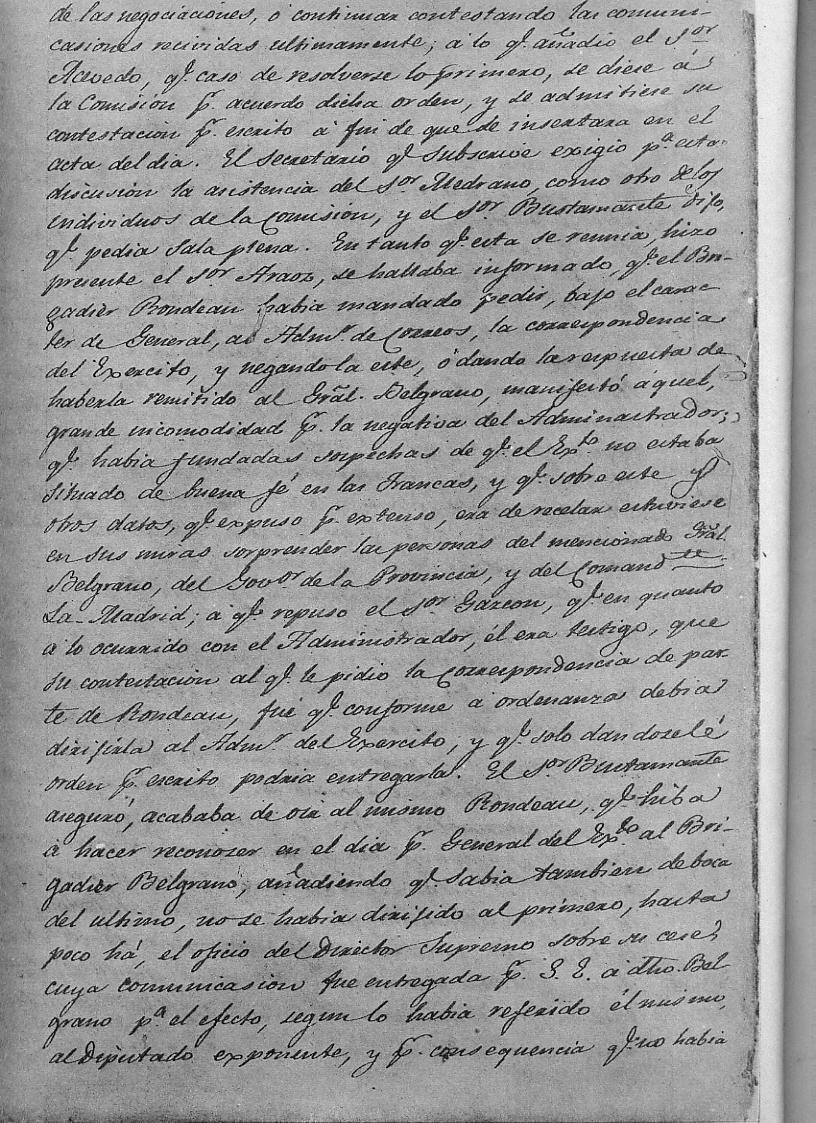 de las negociaciones, ó continuar contestando las comuni-
casiones recividas ultimamente; á lo qᵉ. añadió el Sᵒʳ
Acevedo, qᵉ. caso de resolverse lo primero, se diese á
la Comision pʳ. acuerdo dicha orden, y se admitiese su
contestacion pʳ. escrito á fin de que se insertara en el
acta del dia. El Secretario qᵉ subscrive exigio pᵃ. esta
discusion la asistencia del Sᵒʳ Medrano, como otro de los
individuos de la Comision, y el Sᵒʳ Bustamante dijo,
qᵉ. pedia Sala plena. En tanto qᵉ. esta se reunia, hizo
presente el Sᵒʳ Araoz, se hallaba informado, qᵉ. el Bri-
gadier Rondeau habia mandado pedir, bajo el carac-
ter de General, al Admʳ. de Correos, la correspondencia
del Exercito, y negandola este, ó dando la respuesta de
haberla remitido al Grãl. Belgrano, manifestó aquel,
grande incomodidad pʳ. la negativa del Administrador;
qᵉ. habia fundadas sospechas de qᵉ. el Exᵗᵒ. no estaba
situado de buena fé en las Trancas, y qᵉ. sobre este y
otros datos, qᵉ. expuso pʳ. extenso, era de recelar estuviese
en sus miras sorprender las personas del mencionado Grãl.
Belgrano, del Govᵒʳ de la Provincia, y del Comandᵗᵉ.
La-Madrid; á qᵉ. repuso el Sᵒʳ Gazcon, qᵉ. en quanto
á lo ocurrido con el Administrador, él era testigo, que
su contestacion al qᵉ. le pidio la Correspondencia de par-
te de Rondeau, fué qᵉ. conforme á ordenanza debia
dirijirla al Admʳ. del Exercito, y qᵉ. solo dandosele
orden pʳ. escrito podria entregarla. El Sᵒʳ Bustamante
aseguró, acababa de oir al mismo Rondeau, qᵉ. hiba
á hacer reconozer en el dia pʳ. General del Exᵗᵒ. al Bri-
gadier Belgrano, añadiendo qᵉ. sabia tambien de boca
del ultimo, no se habia dirijido al primero, hasta
poco há, el oficio del Director Supremo sobre su cese,
cuya comunicasion fue entregada pʳ. S. E. á dho. Bel
grano pᵃ el efecto, segun lo habia referido él mismo,
al Diputado exponente, y pʳ. consequencia qᵉ. no habia